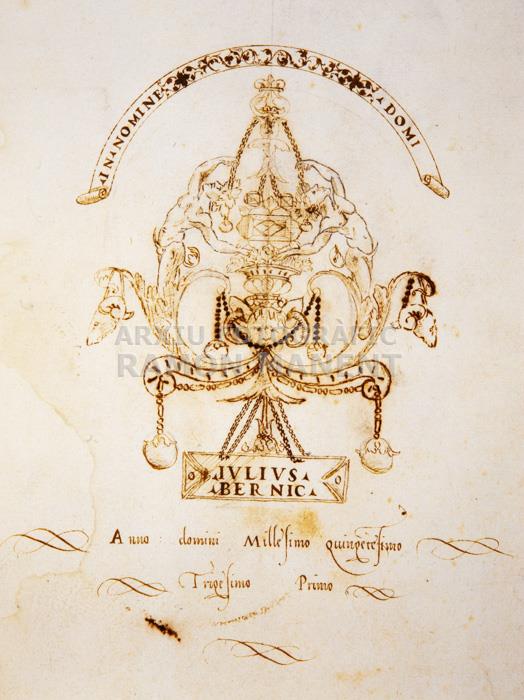 IN NOMINE DOMI
ARXIU FOTOGRÀFIC
RAMON MANENT
IVLIVS
BERNIC
Anno domini Millesimo quingẽtesimo
Trigesimo Primo